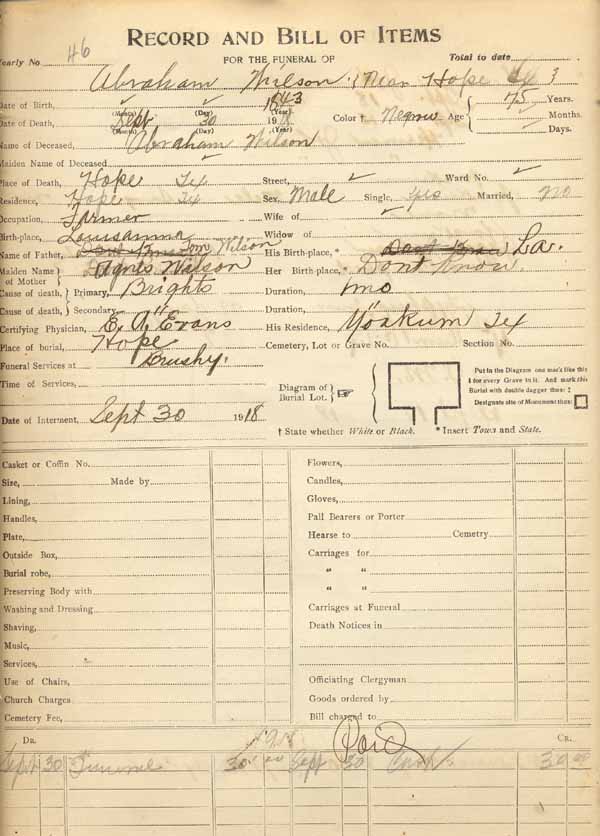 RECORD AND BILL OF ITEMS
Yearly No 46 FOR THE FUNERAL OF Total to date
Abraham Wilson (Near Hope Tex)
Date of Birth, (Month) (Day) 1843 (Year)
Date of Death, Sept (Month) 30 (Day) 1918 (Year) Color † Negro Age 75 Years. Months. Days.
Name of Deceased, Abraham Wilson
Maiden Name of Deceased
Place of Death, Hope Tex Street, Ward No.
Residence, Hope Tex Sex, Male Single, yes Married, no
Occupation, Farmer Wife of
Birth-place, Louisanna Widow of
Name of Father, Dont Know Tom Wilson His Birth-place, * Dont Know La.
Maiden Name of Mother Agnes Wilson Her Birth-place, * Dont Know
Cause of death, Primary, Brights Duration, 1mo
Cause of death, Secondary " Duration, "
Certifying Physician, E. A. Evans His Residence, Yoakum Tex
Place of burial, Hope Cemetery, Lot or Grave No. Section No.
Funeral Services at Brushy.
Time of Services,
Diagram of Burial Lot. ☞ Put in the Diagram one mark like this I for every Grave in it. And mark this Burial with double dagger thus: ‡ Designate site of Monument thus: □
Date of Interment, Sept 30 1918
† State whether White or Black. * Insert Town and State.
Casket or Coffin No. Flowers,
Size, Made by Candles,
Lining, Gloves,
Handles, Pall Bearers or Porter
Plate, Hearse to Cemetry
Outside Box, Carriages for
Burial robe, " "
Preserving Body with " "
Washing and Dressing Carriages at Funeral
Shaving, Death Notices in
Music,
Services,
Use of Chairs, Officiating Clergyman
Church Charges Goods ordered by
Cemetery Fee, Bill charged to
DR. Paid CR.
Sept 30 Funeral 30.00 Sept 30 Cash 30 00